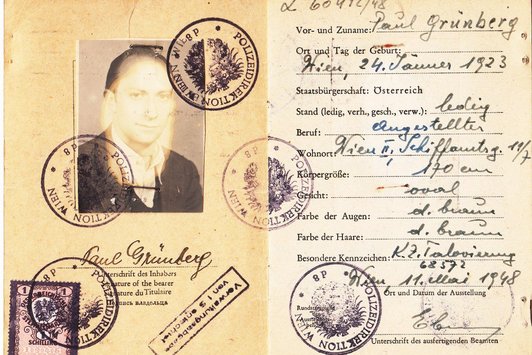 POLIZEIDIREKTION WIEN
8P
POLIZEIDIREKTION WIEN
8P
POLIZEIDIREKTION WIEN
8P
Paul Grünberg
Unterschrift des Inhabers
Signature of the bearer
Signature du Titulaire
владельца
POLIZEIDIREKTION WIEN
8P
1
SCHILLING
Verwaltungsabgabe
L 60412/48
Vor- und Zuname: Paul Grünberg
Ort und Tag der Geburt:
Wien, 24. Jänner 1923
Staatsbürgerschaft: Österreich
Stand (ledig, verh., gesch., verw.) ledig
Beruf: Angestellter
Wohnort: Wien II, Schiffamtsg.
Körpergröße: 170 cm
Gesicht: oval
Farbe der Augen: d. braun
Farbe der Haare: d. braun
Besondere Kennzeichen: K.Z. Tätovierung
68572
Wien, 11. Mai 1948
Ort und Datum der Ausstellung
POLIZEIDIREKTION WIEN
8P
Unterschrift des Beamten